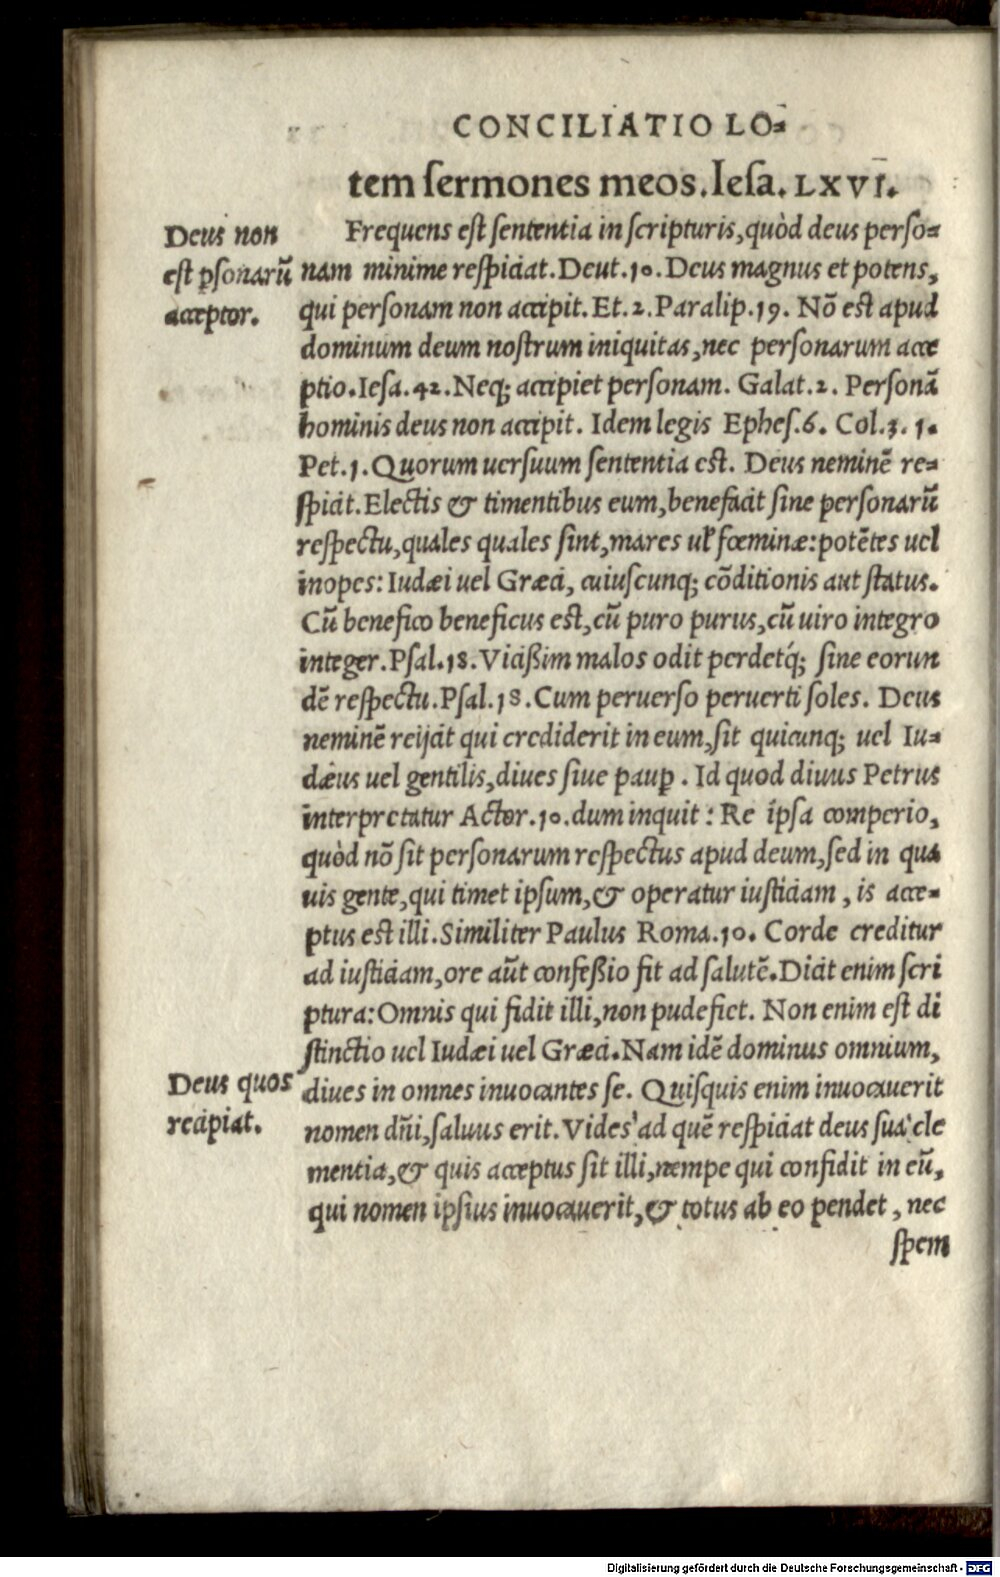 CONCILIATIO LO⸗
tem sermones meos.Iesa.LXVI.
Deus non
est ꝑsonarũ
acceptor.
Frequens est sententia in scripturis,quòd deus perso⸗
nam minime respiciat.Deut.10.Deus magnus et potens,
qui personam non accipit.Et.2.Paralip.19. Nõ est apud
dominum deum nostrum iniquitas,nec personarum acce
ptio.Iesa.42.Neq; accipiet personam. Galat.2. Personã
hominis deus non accipit. Idem legis Ephes.6. Col.3. 1.
Pet.1.Quorum uersuum sententia est. Deus neminẽ re⸗
spicit.Electis & timentibus eum,benefacit sine personarũ
respectu,quales quales sint,mares uł fœminæ:potẽtes uel
inopes:Iudæi uel Græci, cuiuscunq; cõditionis aut status.
Cũ benefico beneficus est,cũ puro purus,cũ uiro integro
integer.Psal.18.Vicißim malos odit perdetq́; sine eorun
dẽ respectu.Psal.18.Cum peruerso peruerti soles. Deus
neminẽ reijcit qui crediderit in eum,sit quicunq; uel Iu⸗
dæus uel gentilis,diues siue pauꝑ. Id quod diuus Petrus
interpretatur Actor.10.dum inquit: Re ipsa comperio,
quòd nõ sit personarum respectus apud deum,sed in qua
uis gente,qui timet ipsum,& operatur iusticiam, is acce⸗
ptus est illi.Similiter Paulus Roma.10. Corde creditur
ad iusticiam,ore aũt confeßio fit ad salutẽ.Dicit enim scri
ptura:Omnis qui fidit illi,non pudefiet. Non enim est di
stinctio uel Iudæi uel Græci.Nam idẽ dominus omnium,
Deus quos
recipiat.
diues in omnes inuocantes se. Quisquis enim inuocauerit
nomen dñi,saluus erit.Vides ad quẽ respiciat deus sua cle
mentia,& quis acceptus sit illi,nempe qui confidit in eũ,
qui nomen ipsius inuocauerit,& totus ab eo pendet, nec
spem
Digitalisierung gefördert durch die Deutsche Forschungsgemeinschaft - DFG